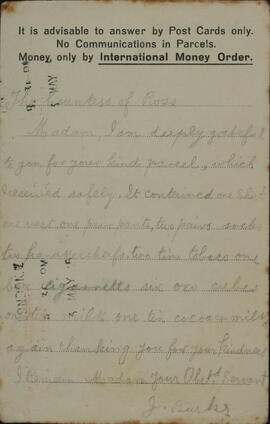 It is advisable to answer by Post Cards only.
No Communications in Parcels.
Money, only by International Money Order.
The Countess of Ross
Madam, I am deeply grateful
to you for your kind parcel, which
I received safely. It contained one shirt
one vest, one pair pants, two pairs socks
two handkerchiefs, two tins tobacco one
box cigarretts six oxo cubes
one tin milk one tin cocoa & milk
again thanking you for your kindness
I Remain Madam Your Obetd. Servant
J. Burke
LONDON
MAY
MAY